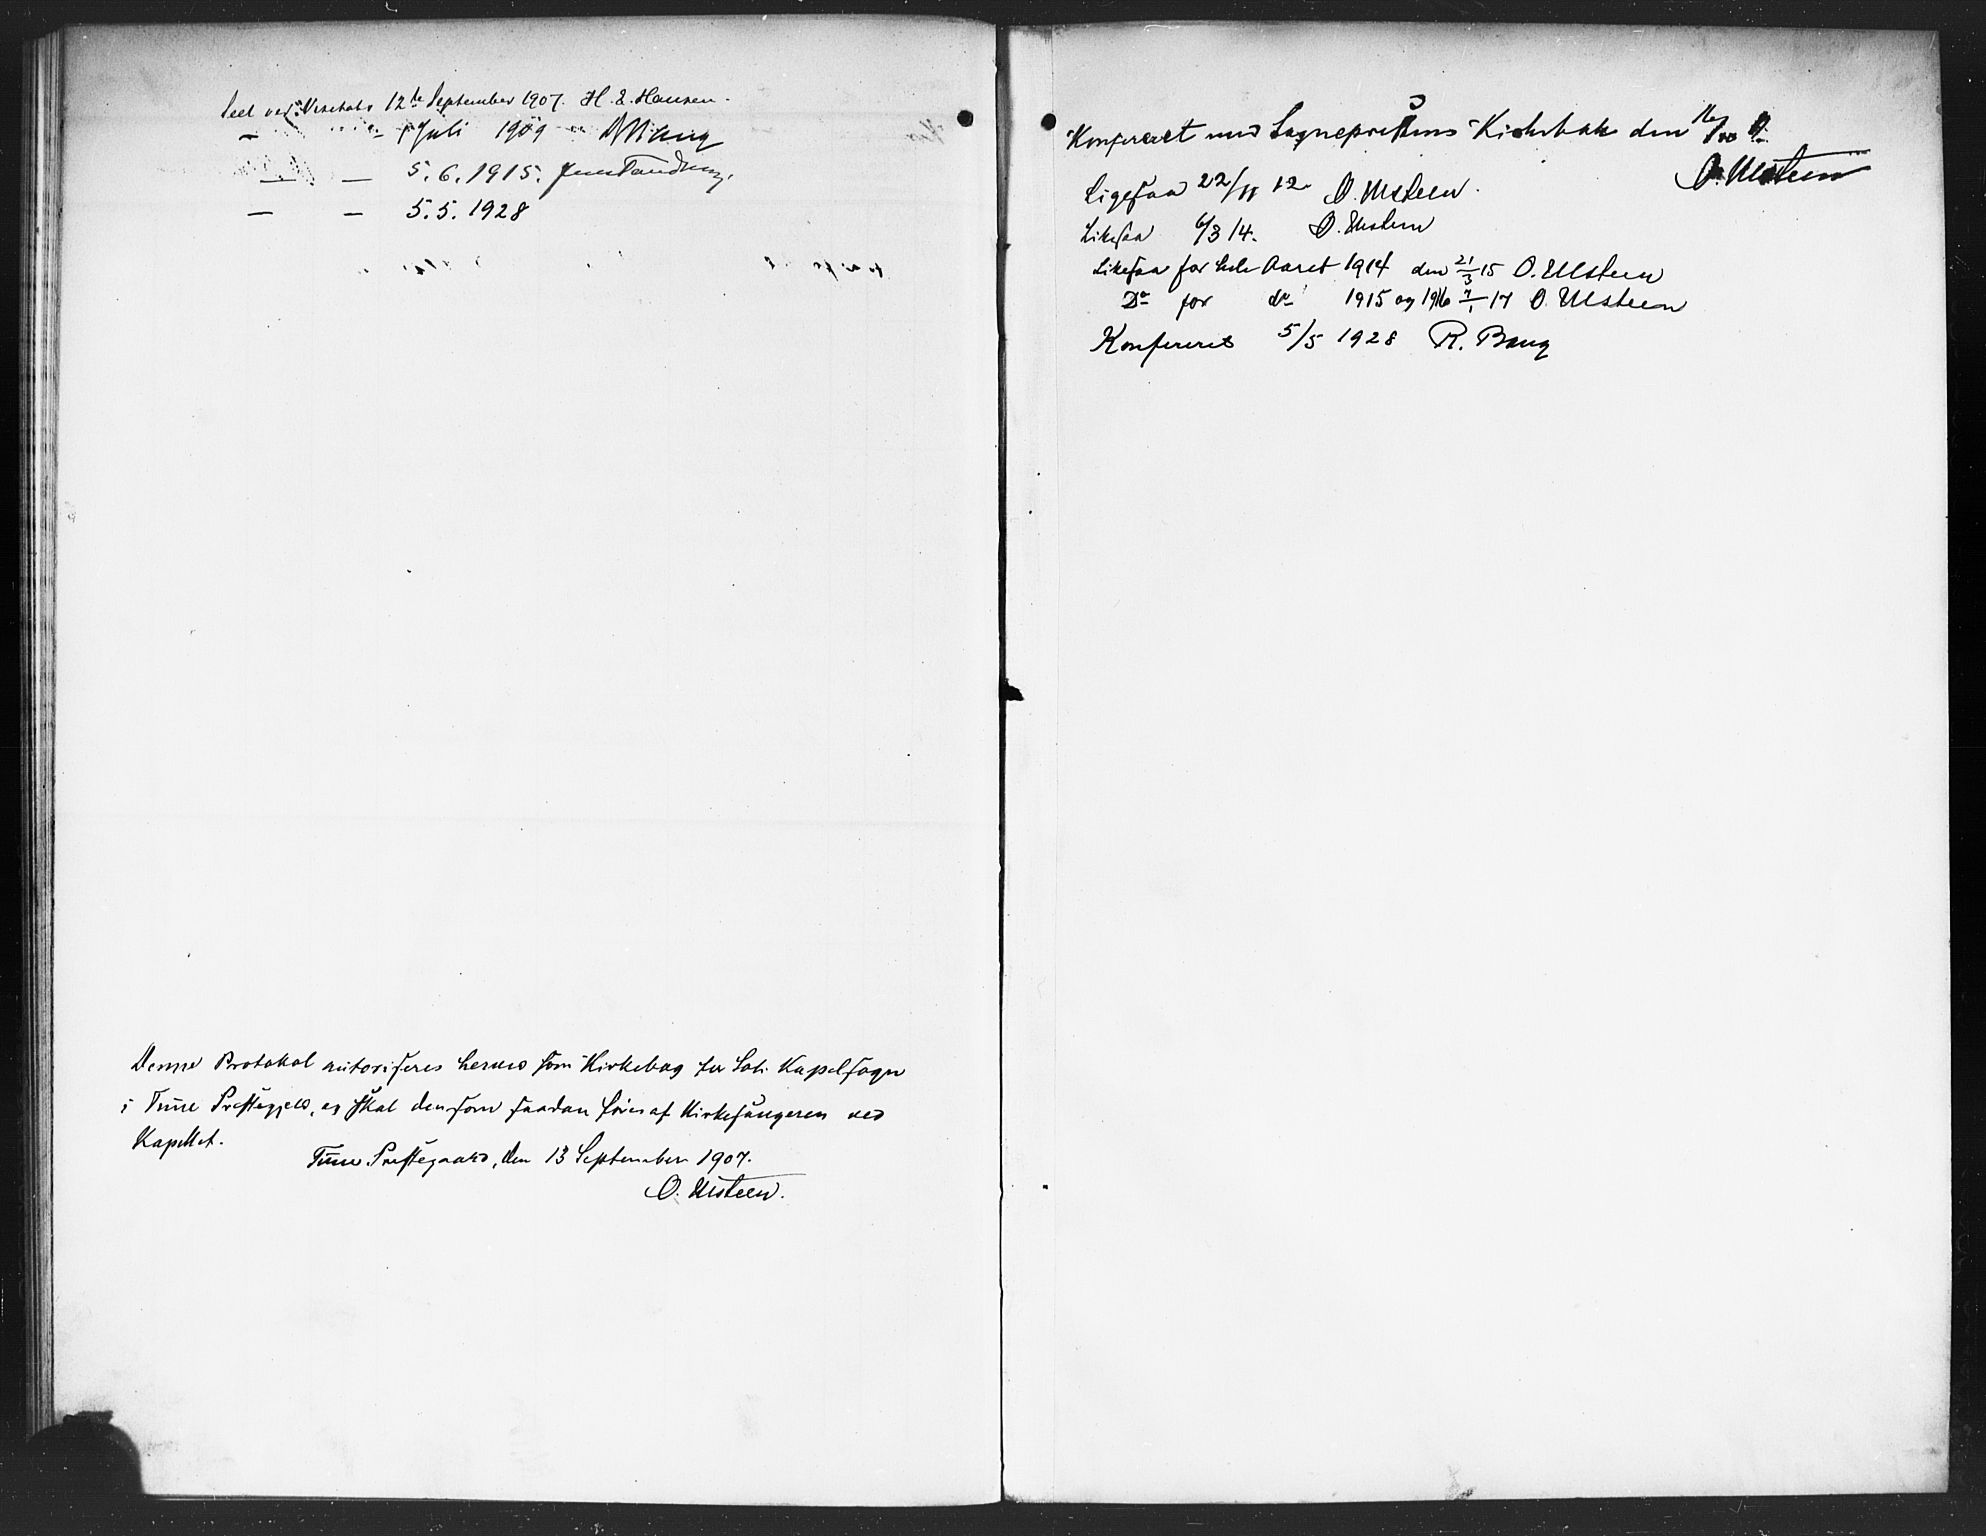 Seet ved Visitats 12te September 1907. H. E. Hansen.
— " — Juli 1909
— — 5.6.1915. Jens Tandberg.
— — 5.5.1928
Denne Protokol autoriseres herved som Kirkebog for Soli Kapelsogn
i Tune Præstegjeld, og skal den som saadan føres af Kirkesangeren ved
Kapellet.
Tune Præstegaard, den 13 September 1907.
O. Ulsteen.
Konfereret med Sogneprestens Kirkebok den
O. Ulsteen
Ligesaa 22/11 12. O. Ulsteen.
Likesaa 6/3 14. O. Ulsteen
Likesaa for hele Aaret 1914 den 21/3 15 O. Ulsteen
Do for do 1915 og 1916 7/1 17 O. Ulsteen
Konfereret 5/5 1928 R. Bang